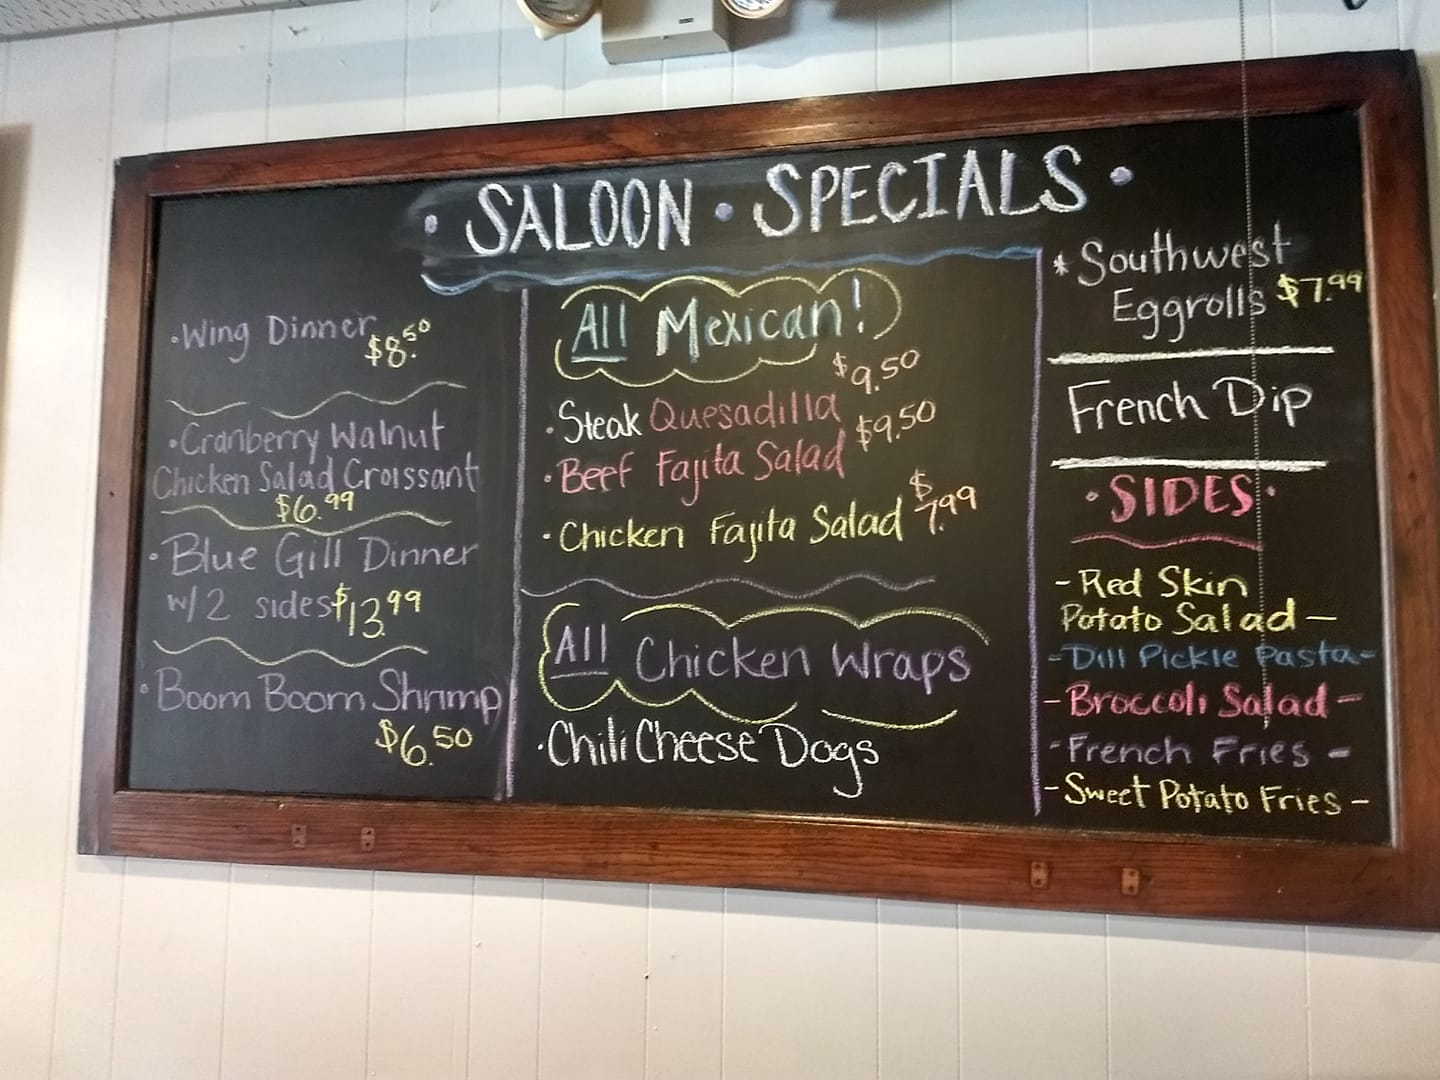 • SALOON • SPECIALS •
• Wing Dinner
$8.50
• Cranberry Walnut
Chicken Salad Croissant
$6.99
• Blue Gill Dinner
w/2 sides $13.99
• Boom Boom Shrimp
$6.50
All Mexican!
$9.50
• Steak Quesadilla
$9.50
• Beef Fajita Salad
$7.99
• Chicken Fajita Salad
All Chicken Wraps
• Chili Cheese Dogs
* Southwest
Eggrolls $7.99
French Dip
• SIDES •
- Red Skin
Potato Salad -
- Dill Pickle Pasta -
- Broccoli Salad -
- French Fries -
- Sweet Potato Fries -